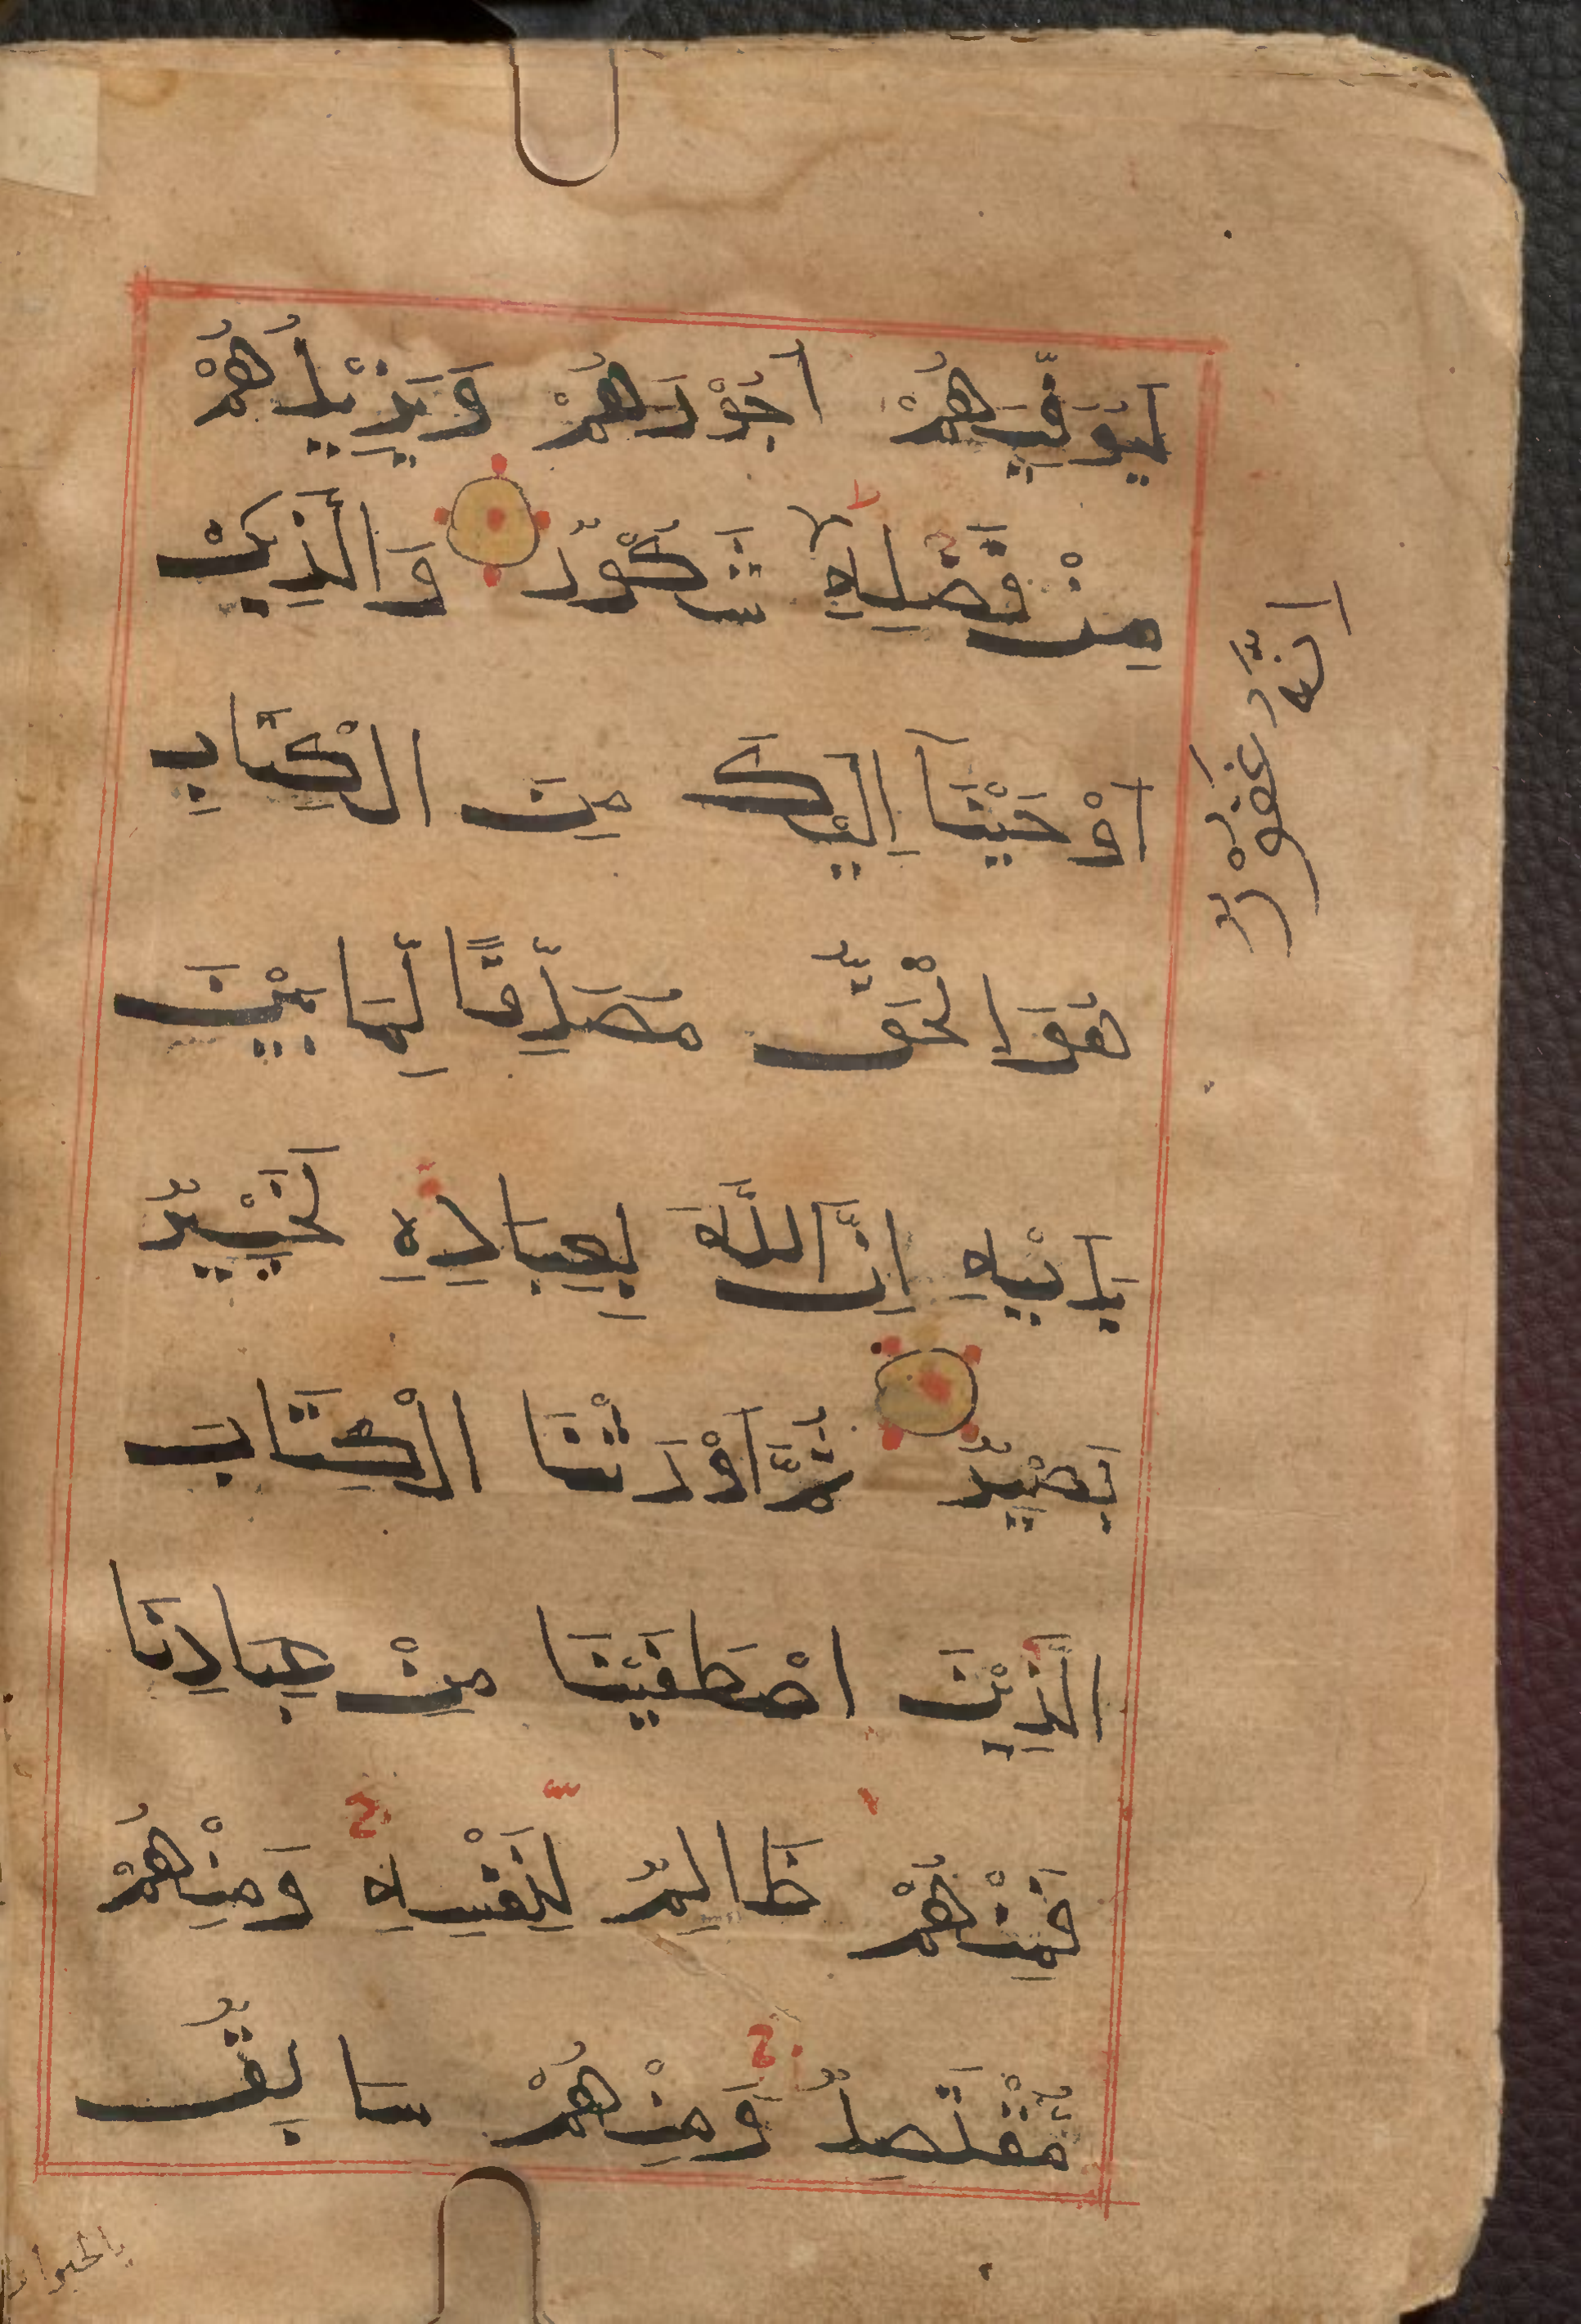 لِيُوَفِّيَهُمْ اُجُوْرَهُمْ وَيَزِيْدَهُمْ
مِنْ فَضْلِهِ شَكُوْرٌ وَالَّذِيْ
اِنَّهٗ غَفُوْرٌ
اَوْحَيْنَآ اِلَيْكَ مِنَ الْكِتَابِ
هُوَ الْحَقُّ مُصَدِّقًا لِّمَا بَيْنَ
يَدَيْهِ اِنَّ اللَّهَ بِعِبَادِهِ لَخَبِيْرٌ
بَصِيْرٌ ثُمَّ اَوْرَثْنَا الْكِتَابَ
الَّذِيْنَ اصْطَفَيْنَا مِنْ عِبَادِنَا
فَمِنْهُمْ ظَالِمٌ لِّنَفْسِهِ وَمِنْهُمْ
مُّقْتَصِدٌ وَمِنْهُمْ سَابِقٌ
بالخيرات